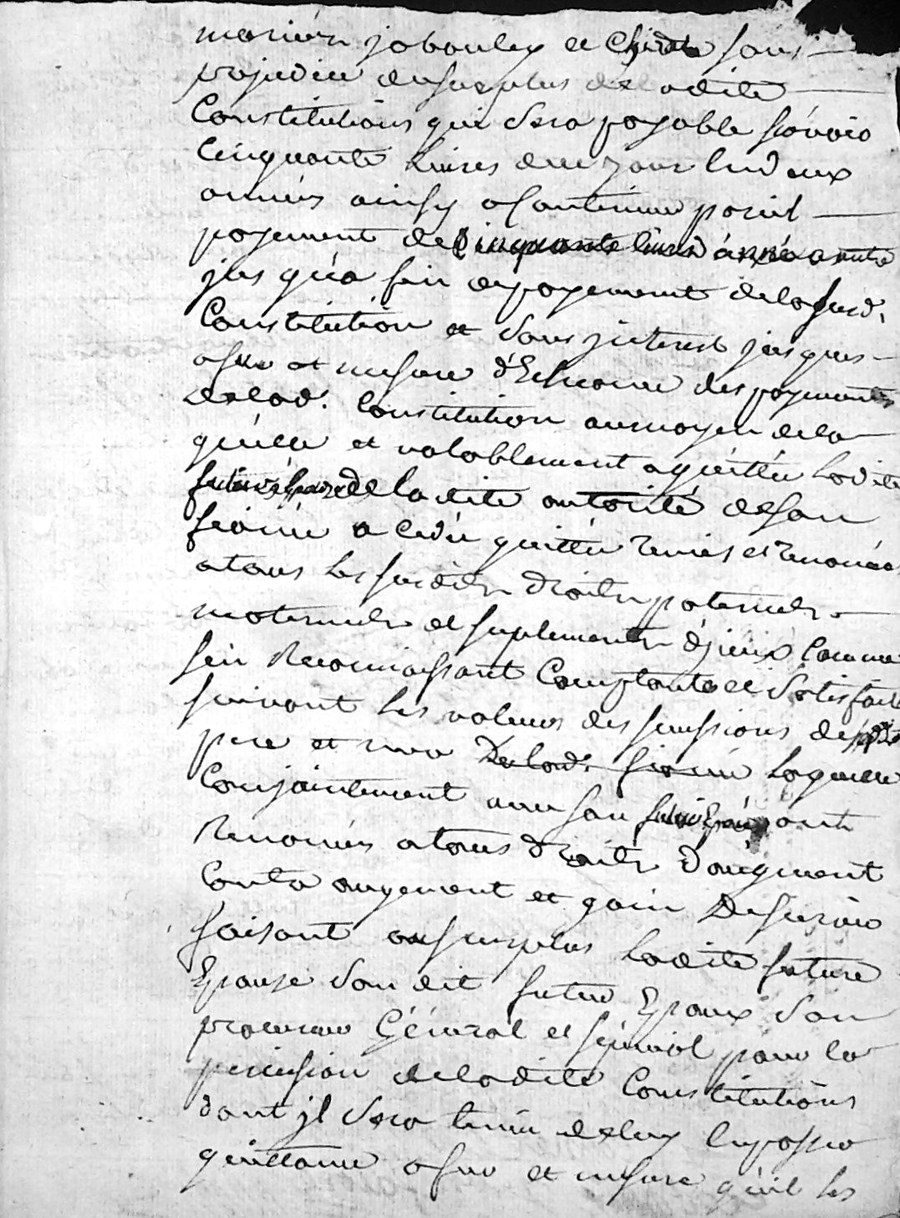 mariés jabouley et sans
prejudice du surplus de ladite
Constitutions qui sera payable sçavoir
Cinquante livres d'un jour en deux
années ainsy a Continuer pareil
payement de Cinquante livres année a autre
jus qua fin de payement de la susd.
Constitution et sans jnterest jusques
a fur et mesure d'Echeance des payements
de lad. Constitution au moyen de la
quelle et valablement aquittée ladite
future Epouse de ladite autorité de son
fiancé a cedée quittée remis et renoncée
a tous les susdits droits paternels
maternels et suplements d'jceux Comme
sen Reconnoissant Comptante et satisfaite
suivant les valeurs des sucessions de sesd.
pere et mere De lad. fiancée laquelle
Conjointement avec son futur Epoux ont
Renoncés a tous droits d'augment
Contre augement et gain De survie
faisant au surplus ladite future
Epouse son dit futur Epoux son
procureur Général et spécial pour la
perception de ladite Constitutions
dont jl sera tenu de luy En passer
quittance a fur et mesure qu'il les